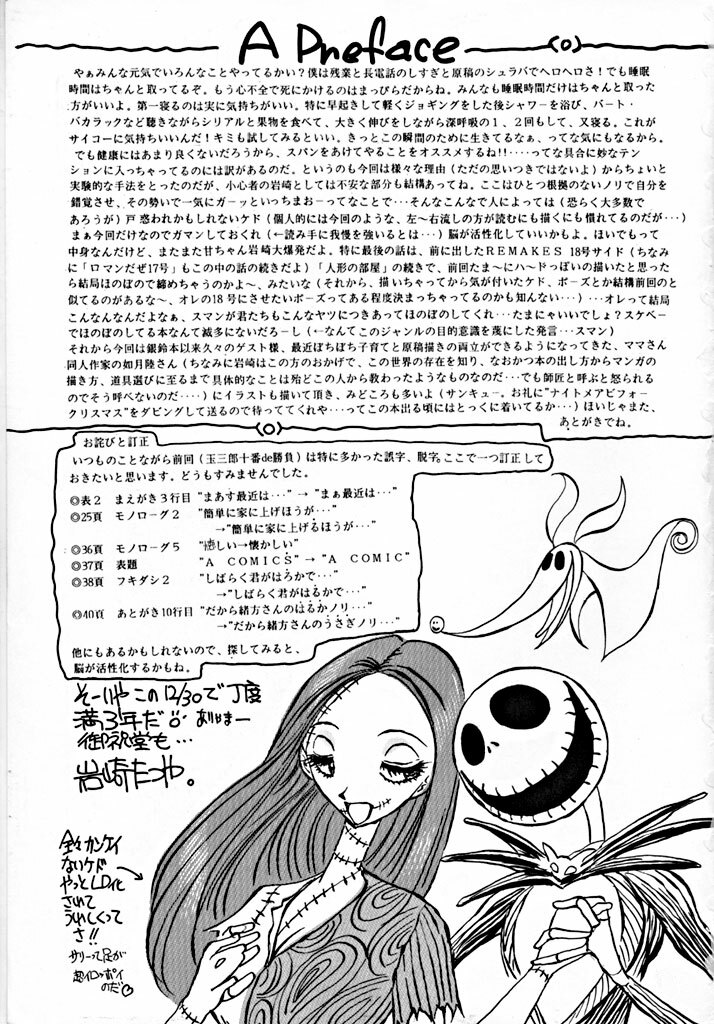 A Preface
やぁみんな元気でいろんなことやってるかい？僕は残業と長電話のしすぎと原稿のシュラバでヘロヘロさ！でも睡眠
時間はちゃんと取ってるぞ。もう心不全で死にかけるのはまっぴらだからね。みんなも睡眠時間だけはちゃんと取った
方がいいよ。第一寝るのは実に気持ちがいい。特に早起きして軽くジョギングをした後シャワーを浴び、バート・
バカラックなど聴きながらシリアルと果物を食べて、大きく伸びをしながら深呼吸の１、２回もして、又寝る。これが
サイコーに気持ちいいんだ！キミも試してみるといい。きっとこの瞬間のために生きてるなぁ、ってな気にもなるから。
でも健康にはあまり良くないだろうから、スパンをあけてやることをオススメするね!!‥‥ってな具合に妙なテン
ションに入っちゃってるのには訳があるのだ。というのも今回は様々な理由（ただの思いつきではないよ）からちょいと
実験的な手法をとったのだが、小心者の岩崎としては不安な部分も結構あってね。ここはひとつ根拠のないノリで自分を
錯覚させ、その勢いで一気にガーッといっちまおーってなことで‥‥そんなこんなで人によっては（恐らく大多数で
あろうが）戸惑われかもしれないケド（個人的には今回のような、左〜右流しの方が読むにも描くにも慣れてるのだが‥‥）
まぁ今回だけなのでガマンしておくれ（←読み手に我慢を強いるとは‥‥）脳が活性化していいかもよ。ほいでもって
中身なんだけど、またまた甘ちゃん岩崎大爆発だよ。特に最後の話は、前に出したＲＥＭＡＫＥＳ 18号サイド（ちなみ
に「ロマンだぜ17号」もこの中の話の続きだよ）「人形の部屋」の続きで、前回たま〜にハ〜ドっぽいの描いたと思った
ら結局ほのぼので締めちゃうのかよ〜、みたいな（それから、描いちゃってから気が付いたケド、ポーズとか結構前回のと
似てるのがあるな〜、オレの18号にさせたいポーズってある程度決まっちゃってるのかも知んない‥‥）‥‥オレって結局
こんなんなんだよなぁ、スマンが君たちもこんなヤツにつきあってほのぼのしてくれ‥‥たまにゃいいでしょ？スケベー
でほのぼのしてる本なんて滅多にないだろーし（←なんてこのジャンルの目的意識を蔑にした発言‥‥スマン）
それから今回は銀鈴本以来久々のゲスト様、最近ぼちぼち子育てと原稿描きの両立ができるようになってきた、ママさん
同人作家の如月陸さん（ちなみに岩崎はこの方のおかげで、この世界の存在を知り、なおかつ本の出し方からマンガの
描き方、道具選びに至るまで具体的なことは殆どこの人から教わったようなものなのだ‥‥でも師匠と呼ぶと怒られる
のでそう呼べないのだ‥‥）にイラストも描いて頂き、みどころも多いよ（サンキュー。お礼に”ナイトメアビフォー
クリスマス”をダビングして送るので待っててくれや‥‥ってこの本出る頃にはとっくに着いてるか‥‥）ほいじゃまた、
あとがきでね。
お詫びと訂正
いつものことながら前回（玉三郎十番de勝負）は特に多かった誤字、脱字、ここで一つ訂正して
おきたいと思います。どうもすみませんでした。
◎表２ まえがき３行目 “まあす最近は‥‥” → “まぁ最近は‥‥”
◎25頁 モノローグ２ “簡単に家に上げほうが‥‥”
→“簡単に家に上げるほうが‥‥”
◎36頁 モノローグ５ “懐しい→懐かしい”
◎37頁 表題 “Ａ ＣＯＭＩＣＳ” → “Ａ ＣＯＭＩＣ”
◎38頁 フキダシ２ “しばらく君がはろかで‥‥”
→“しばらく君がはるかで‥‥”
◎40頁 あとがき10行目 “だから緒方さんのはるかノリ‥‥”
→“だから緒方さんのうさぎノリ‥‥”
他にもあるかもしれないので、探してみると、
脳が活性化するかもね。
そーいや この12/30で丁度
満3年だ
御祝堂も…
岩崎たつや。
全々カンケイ
ないケド
やっとLD化
されて
うれしくって
さ!!
サリーって足が
超イロッポイ
のだ♡